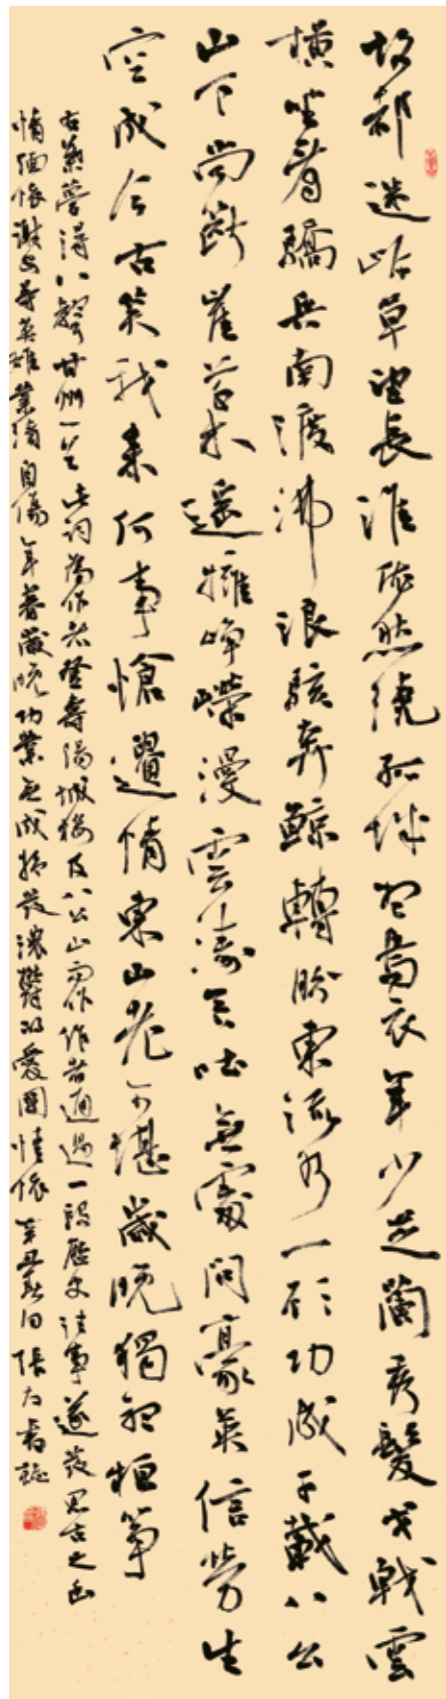 故都迷岸草望長淮依然繞孤城想烏衣年少芝蘭秀髮戈戟雲
橫坐看驕兵南渡沸浪駭奔鯨轉盼東流水一顧功成千載八公
山下尚斷崖草木遙擁崢嶸漫雲濤吞吐無處問豪英信勞生
空成今古笑我來何事愴遺情東山老可堪歲晚獨聽桓箏
右葉夢得八聲甘州一首此詞為作者登壽陽城樓及八公山而作作者通過一段歷史往事遂發思古之幽
情緬懷謝安等英雄業績自傷年暮歲晚功業無成抒發濃鬱的愛國情懷辛丑秋日張